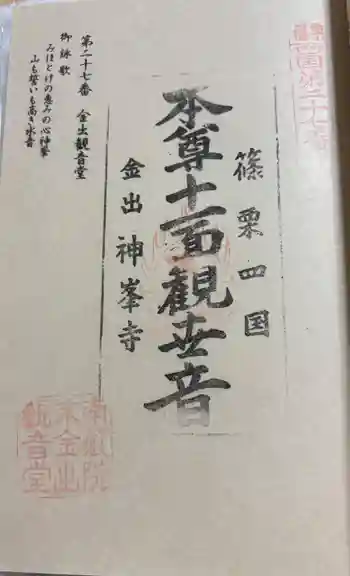 篠栗四国
本尊十一面観世音
金出神峯寺
第二十七番 金出観音堂
御詠歌
みほとけの恵みの心神峯
山も誓いも高き水音
南蔵院
末金出
観音堂